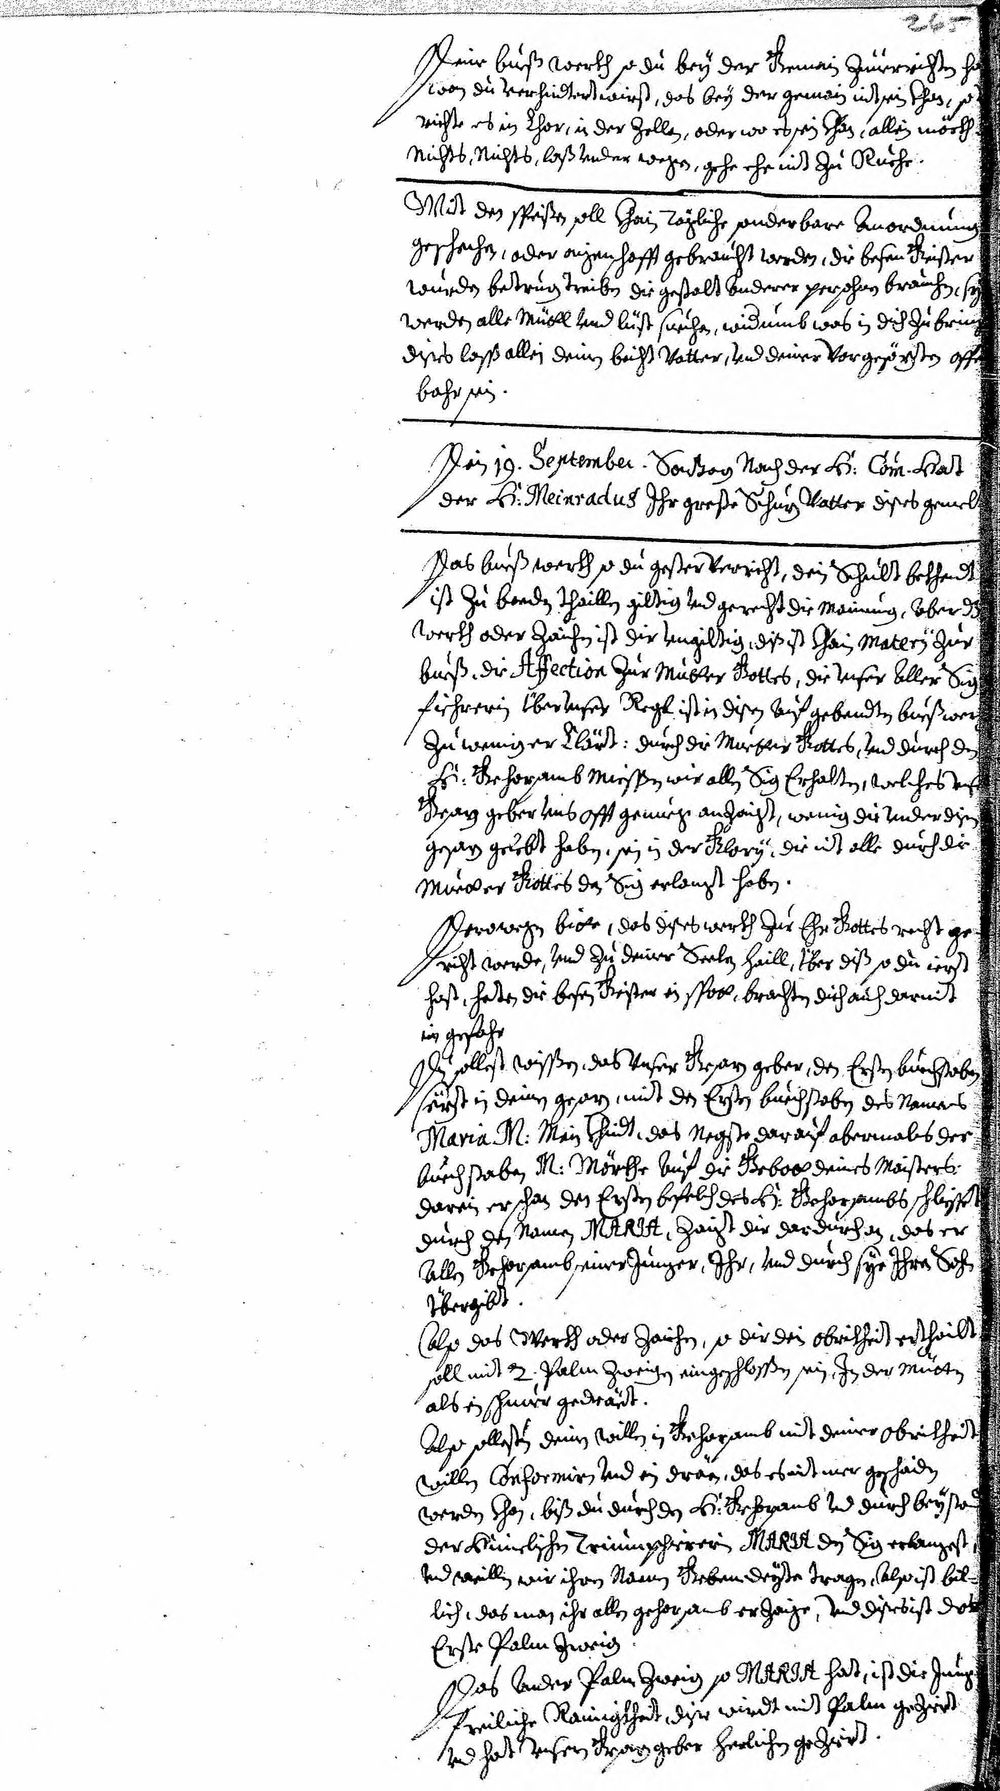 265
Deine buß werkh so du bey der Gemain Zuverrichten ha
wan du verhindert wirst, das bey der gemain nit sein khan, so
richte es in Chor, in der Zellen, oder wo es sein khan, allein
Nichts, Nichts, laß under wegen, gehe ehe nit zu Ruehe.
Mit den speißen soll khain tägliche sonderbare Anordnung
geschehen, oder aigenhafft gebraucht werden, die besen Geister
wurden betrug treiben die gestalt anderer persohn brauchen, sye
werden alle Mittl und lüst suechen, widumb was in dich Zu bring
dises lass allein deinen beicht Vatter, und deiner Vorgesezten offen
bahr sein.
Den 19. September. Sontag Nach der H: Com. hat
der H: Meinradus Ihr große Schuz Vatter dises gemelt
Das bueß werkh so du gester verricht, dein Schult bekhendt
ist Zu beeden thaillen giltig und gerecht die Mainung, aber dz
werkh oder Zaichen ist dir ungiltig, diß ist khain Matery Zur
bueß, die Affection Zur Mueter Gottes, die unser Aller Sig
fiehrerin über unser Regl ist in disen auf gebendten bueß werkh
Zu wenig er Klärt: durch die Mueter Gottes, und durch den
H: Gehorsamb miessen wir allen Sig Erhalten, welches unser
Gesaz geber uns offt genueg anzaigt, wenig die under disen
gesaz gelebt haben, sein in der Glory, die nit alle durch die
Mueter Gottes den Sig erlangt haben.
Derowegen bitte, das dises werkh Zur Ehr Gottes recht ge-
richt werde, und zu deiner Seelen haill, über diß so du ierst
hast, heten die besen Geister ein spott, brachten dich auch darmit
in gefahr
Du sollest wissen, das Unser Gesaz geber, den Ersten buechstaben
sezt in deinen gesaz, mit den Ersten buechstaben des Namens
Maria. M: Mein Khindt, das Negste darauf abermales der
buechstaben M: Mörkhe auf die Gebott deines Maisters:
darein er schon den Ersten befelch des H: Gehorsambs schliest
durch den Namen MARIA, Zaigt dir dardurch an, das er
allen Gehorsamb seiner Junger, Ihr, und durch sye Ihren Sohn
übergibt.
Also das Werkh oder Zaichen, so dir dein obrikheit ertheilt
soll mit 2. Palm Zweigen eingeschlossen sein, In der Mitten
als ein schnur gedraet.
Also sollestu deinen willen in Gehorsamb mit deiner obrikheit
willen Conformirn und ein dräen, das es nit mer geschaiden
werden khan, biß du durch den H: Gehorsamb und durch beystand
der Himelischen Triumphiererin MARIA den Sig erlangest,
und weillen wir ihren Namen Gebenedeyte tragen, Also ist bil-
lich, das man ihr allen gehorsamb erzaige, und dises ist das
Erste Palm Zweig.
Das ander Palm Zweig so MARIA hat, ist die Jung-
freiliche Rainigkheit, dise wirdt mit Palm geziert
und hat unsern Gesaz geber herlichen geziert.